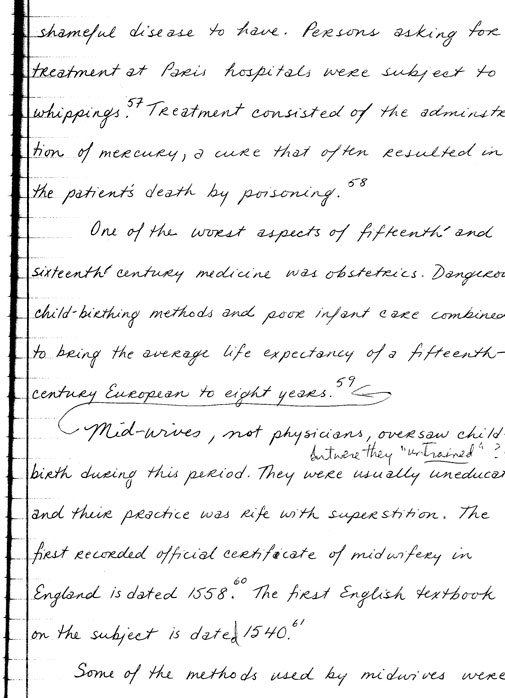 shameful disease to have. Persons asking for
treatment at Paris hospitals were subject to
whippings.57 Treatment consisted of the adminstra
tion of mercury, a cure that often resulted in
the patient's death by poisoning.58
One of the worst aspects of fifteenth- and
sixteenth-century medicine was obstetrics. Dangerou
child-birthing methods and poor infant care combined
to bring the average life expectancy of a fifteenth-
century European to eight years.59
Mid-wives, not physicians, oversaw child-
but were they "untrained"?
birth during this period. They were usually uneducat
and their practice was rife with superstition. The
first recorded official certificate of midwifery in
England is dated 1558.60 The first English textbook
on the subject is dated 1540.61
Some of the methods used by midwives were